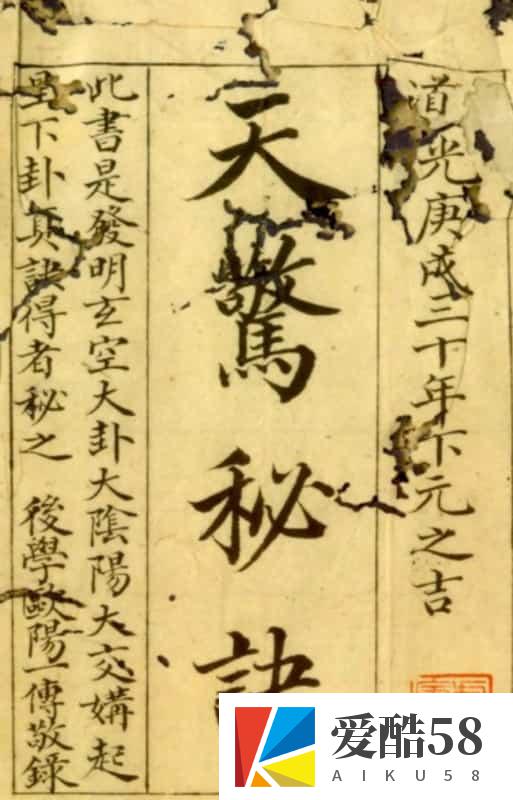 道光庚戌三十年下元之吉
天驚秘訣
此書是發明玄空大卦大陰陽大交媾起
星下卦真訣得者秘之 後學歐陽一傳敬錄
爱酷58
AIKU58